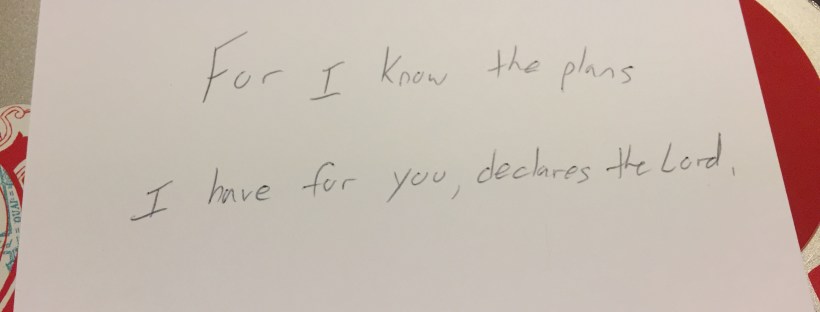 For I know the plans
I have for you, declares the Lord,